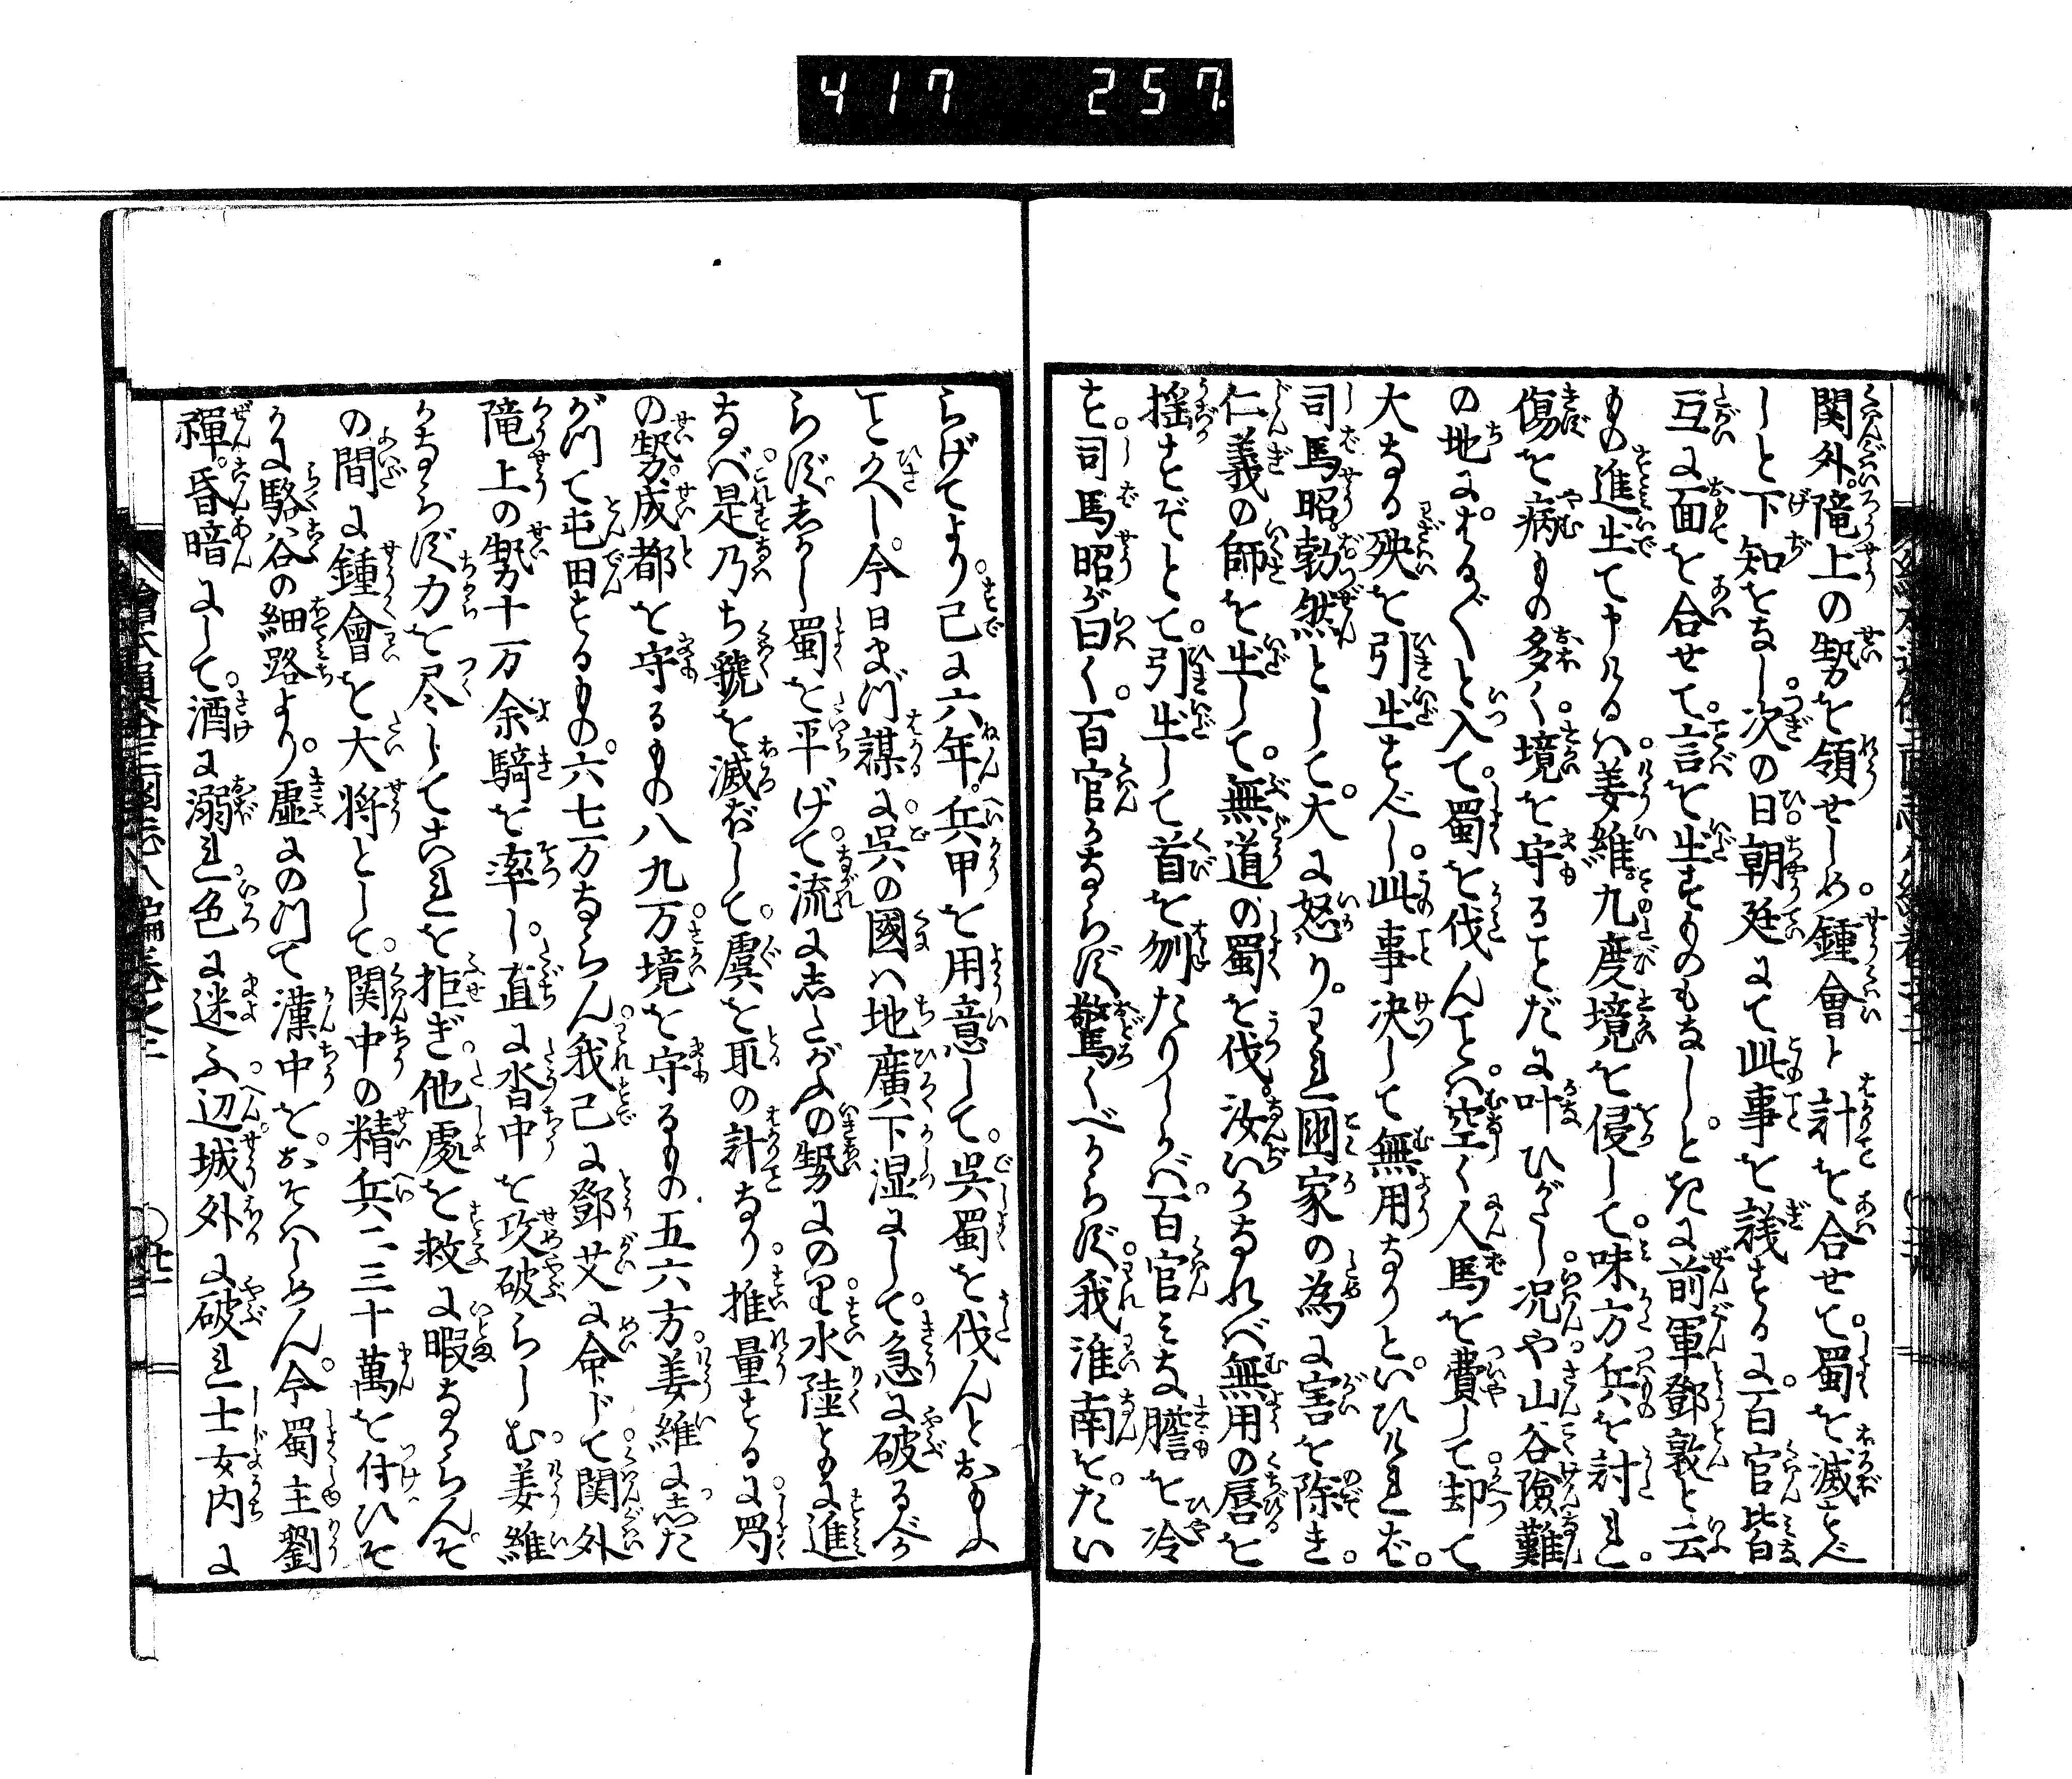 417 257
関外隴上の勢を領せしめ。鍾會と計を合せて。蜀を滅すべ
しと下知をなし。次の日朝廷にて此事を議するに。百官皆
互に面を合せて。言を出すものもなし。とき に前軍鄧敦と云
もの進出て申けるハ。姜維九度境を侵して。味方兵を討れ。
傷を病もの多く。境を守ることだに叶ひがたし。况や山谷險難
の地に。はる〴〵と入て。蜀を伐んこと。空く人馬を費して却て
大なる殃を引出すべし。此事决して無用なりと。いひければ。
司馬昭勃然として。大に怒り。われ國家の為に害を除き。
仁義の師を出して。無道の蜀を伐。汝いかなれバ無用の唇を
揺すぞとて。引出して首を刎たりしかバ。百官みな膽を冷
す。司馬昭が曰く。百官かならず驚くべからず。我淮南を。たい
らげてより。已に六年。兵甲を用意して。呉蜀を伐んとおもふ
こと久し。今日まづ謀に。呉の國ハ地廣下湿にして。急に破るべか
らず。しかし蜀を平げて。流にしたがふの勢にのり。水陸ともに進
なバ。是乃ち虢を滅ぼして。虞を取の計なり。推量するに。蜀
の勢。成都を守るもの八九万。境を守るもの五六万。姜維にした
がつて屯田するもの。六七万ならん。我已に鄧艾に命じて。関外
隴上の勢十万余騎を率し。直に沓中を攻破らしむ。姜維
かならず力を尽してこれを拒ぎ。他處を救に暇なからん。そ
の間に鍾會を大将として。関中の精兵二三十萬を付。ひそ
かに駱谷の細路より。虚にのつて漢中を。おそハしめん。今蜀主劉
禪。昏暗にして。酒に溺れ。色に迷ふ。辺城外に破れ士女内に